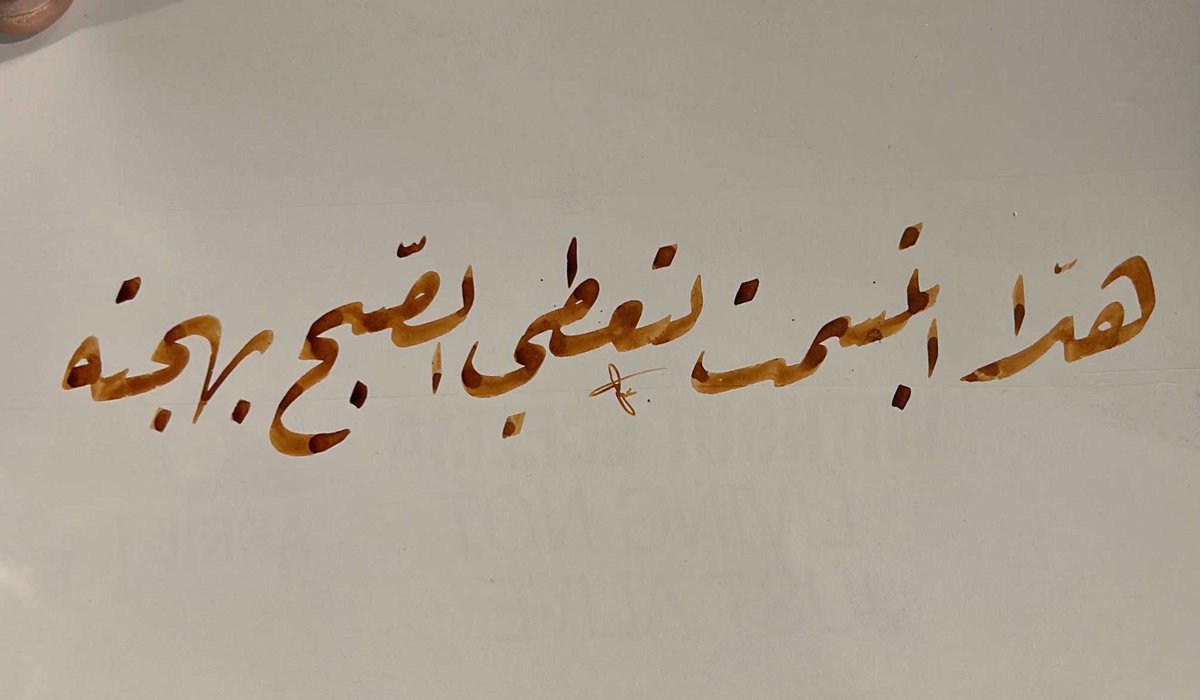 هلّا ابتسمت لتعطي الصّبح بهجته